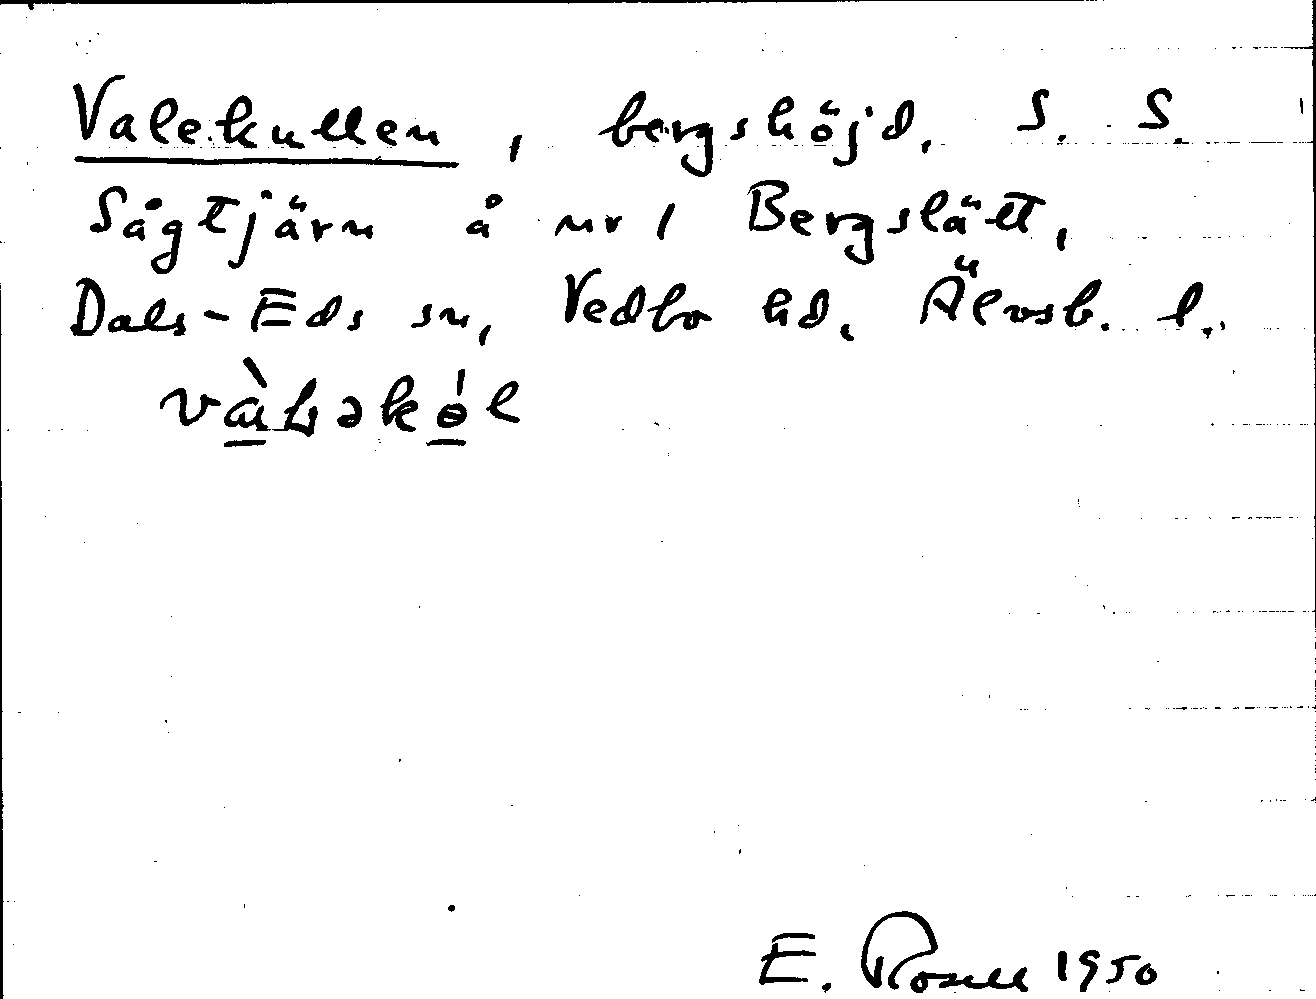 Valekullen, bergshöjd, S. S.
Sågtjärn å nr 1 Bergslätt,
Dals-Eds sn, Vedbo hd. Älvsb. l.
và̱ɫəkɵ̱́l
E. Rosell 1950